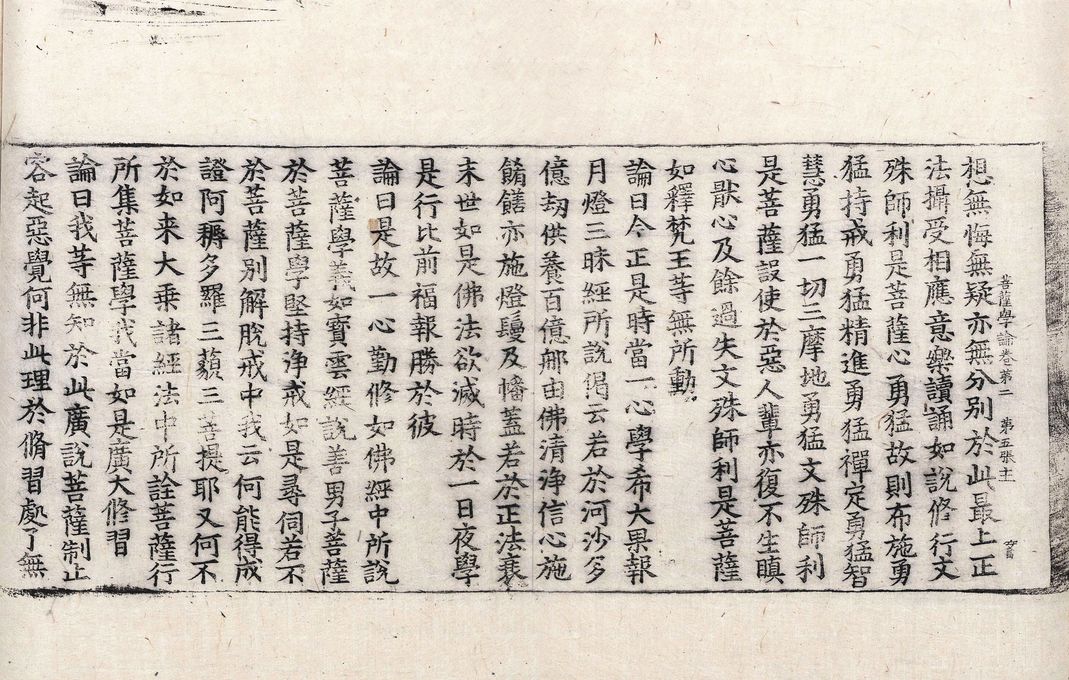 菩薩學論卷第二 第五張 主
想無悔無疑亦無分別於此最上正
法攝受相應意樂讀誦如說修行文
殊師利是菩薩心勇猛故則布施勇
猛持戒勇猛精進勇猛禪定勇猛智
慧勇猛一切三摩地勇猛文殊師利
是菩薩設使於惡人輩亦復不生瞋
心猒心及餘過失文殊師利是菩薩
如釋梵王等無所動
論曰今正是時當一心學希大果報
月燈三昧經所說偈云若於河沙多
億劫供養百億那由佛清淨信心施
餚饍亦施燈鬘及幡蓋若於正法衰
末世如是佛法欲滅時於一日夜學
是行比前福報勝於彼
論曰是故一心勤修如佛經中所說
菩薩學義如寶雲經說善男子菩薩
於菩薩學堅持淨戒如是尋伺若不
於菩薩別解脫戒中我云何能得成
證阿耨多羅三藐三菩提耶又何不
於如来大乘諸經法中所詮菩薩行
所集菩薩學我當如是廣大修習
論曰我等無知於此廣說菩薩制止
容起惡覺何非此理於脩習處了無